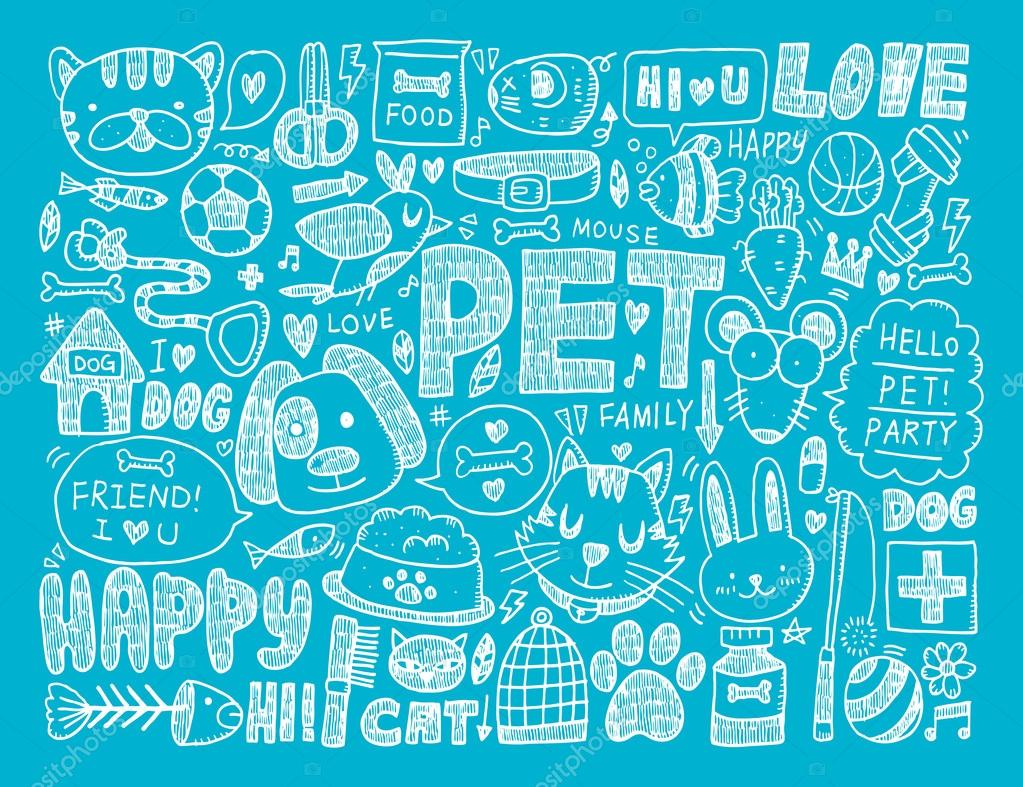 FOOD
HI U
LOVE
HAPPY
MOUSE
PET
LOVE
DOG
I
DOG
HELLO
PET!
PARTY
FAMILY
FRIEND!
I U
DOG
HAPPY
HI!!
CAT
depositphotos